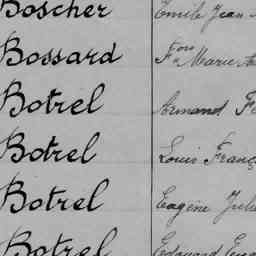 Boscher Emile Jean
Bossard Fois Marie
Botrel Armand
Botrel Louis
Botrel Eugène
Botrel Edouard